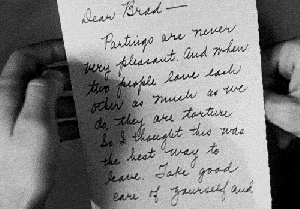 Dear Brad—
Partings are never
very pleasant. And when
two people love each
other as much as we
do, they are torture
So I thought this was
the best way to
leave. Take good
care of yourself and